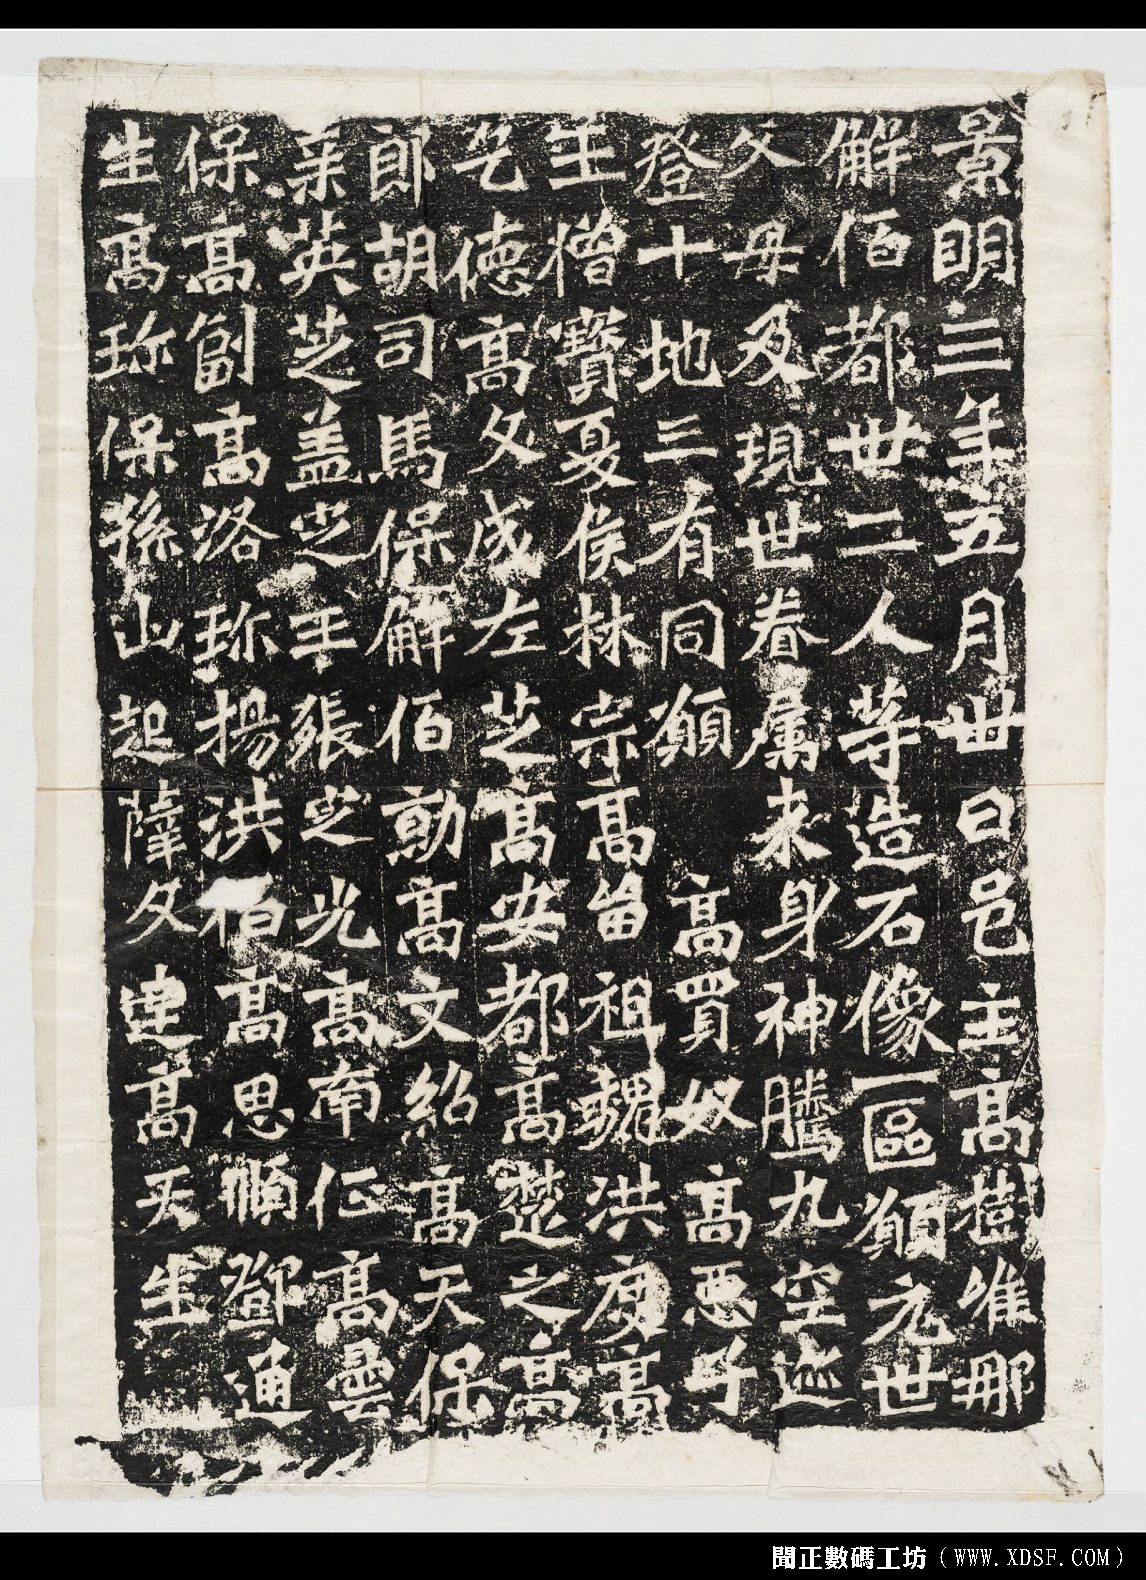 景明三年五月卅日邑主高樹唯那
解佰都卅二人等造石像一區願元世
父母及現世眷属未身神騰九空迹
登十地三有同願 高買奴高悪子
王僧寶夏侯林宗高留祖魏洪度高
乞德高文成左芝高安都高楚之高
郎胡司馬保解佰勍高文紹高天保
英芝盖芝王張芝光高南征高曇
保高副高洛珎揚洪佰高思順鄧通
生高珎保孫山起薛文達高天生
聞正數碼工坊（WWW.XDSF.COM）